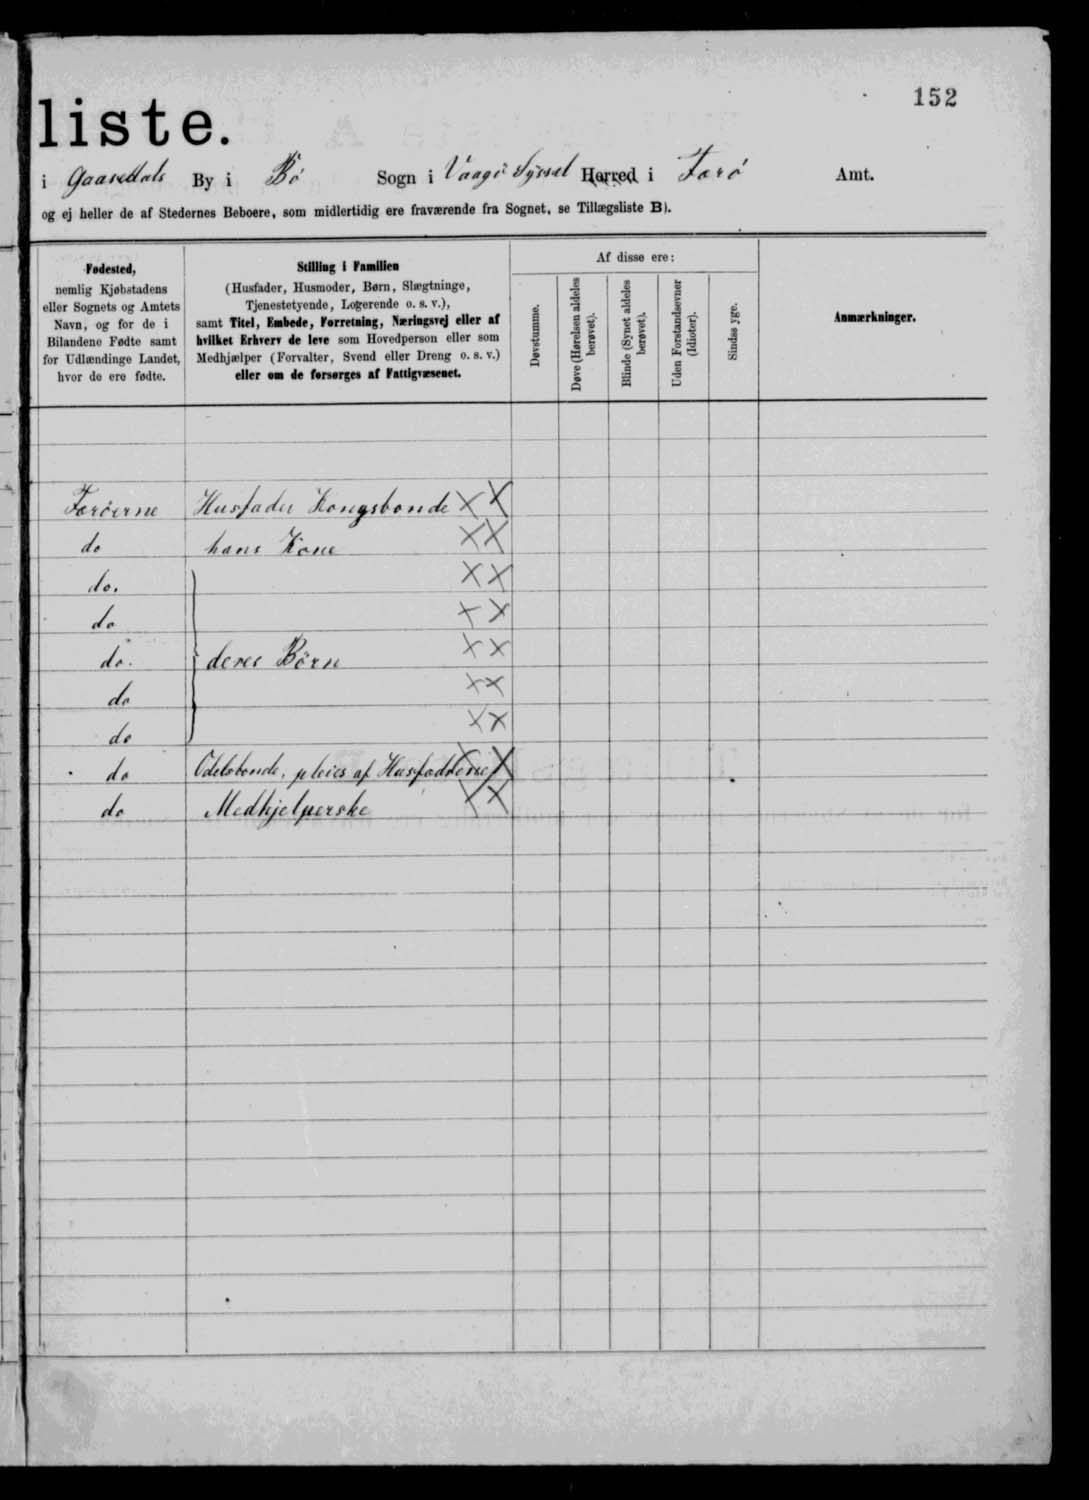 152
liste.
i Gaasedals By i Bø Sogn i Vaagø Syssel Herred i Færø Amt.
og ej heller de af Stedernes Beboere, som midlertidig ere fraværende fra Sognet, se Tillægsliste B).
Fødested,
nemlig Kjøbstadens
eller Sognets og Amtets
Navn, og for de i
Bilandene Fødte samt
for Udlændinge Landet,
hvor de ere fødte.
Stilling i Familien
(Husfader, Husmoder, Børn, Slægtninge,
Tjenestetyende, Logerende o. s. v.),
samt Titel, Embede, Forretning, Næringsvej eller af
hvilket Erhverv de leve som Hovedperson eller som
Medhjælper (Forvalter, Svend eller Dreng o. s. v.)
eller om de forsørges af Fattigvæsenet.
Af disse ere:
Døvstumme.
Døve (Hørelsen aldeles
berøvet).
Blinde (Synet aldeles
berøvet).
Uden Forstandsevner
(Idioter).
Sindssyge.
Anmærkninger.
Færøerne Husfader Kongsbonde X X
do hans Kone X X
do. X X
do X X
do. deres Börn X X
do X X
do X X
do Odelsbonde, pleies af Husfaderene X X
do Medhjelperske X X